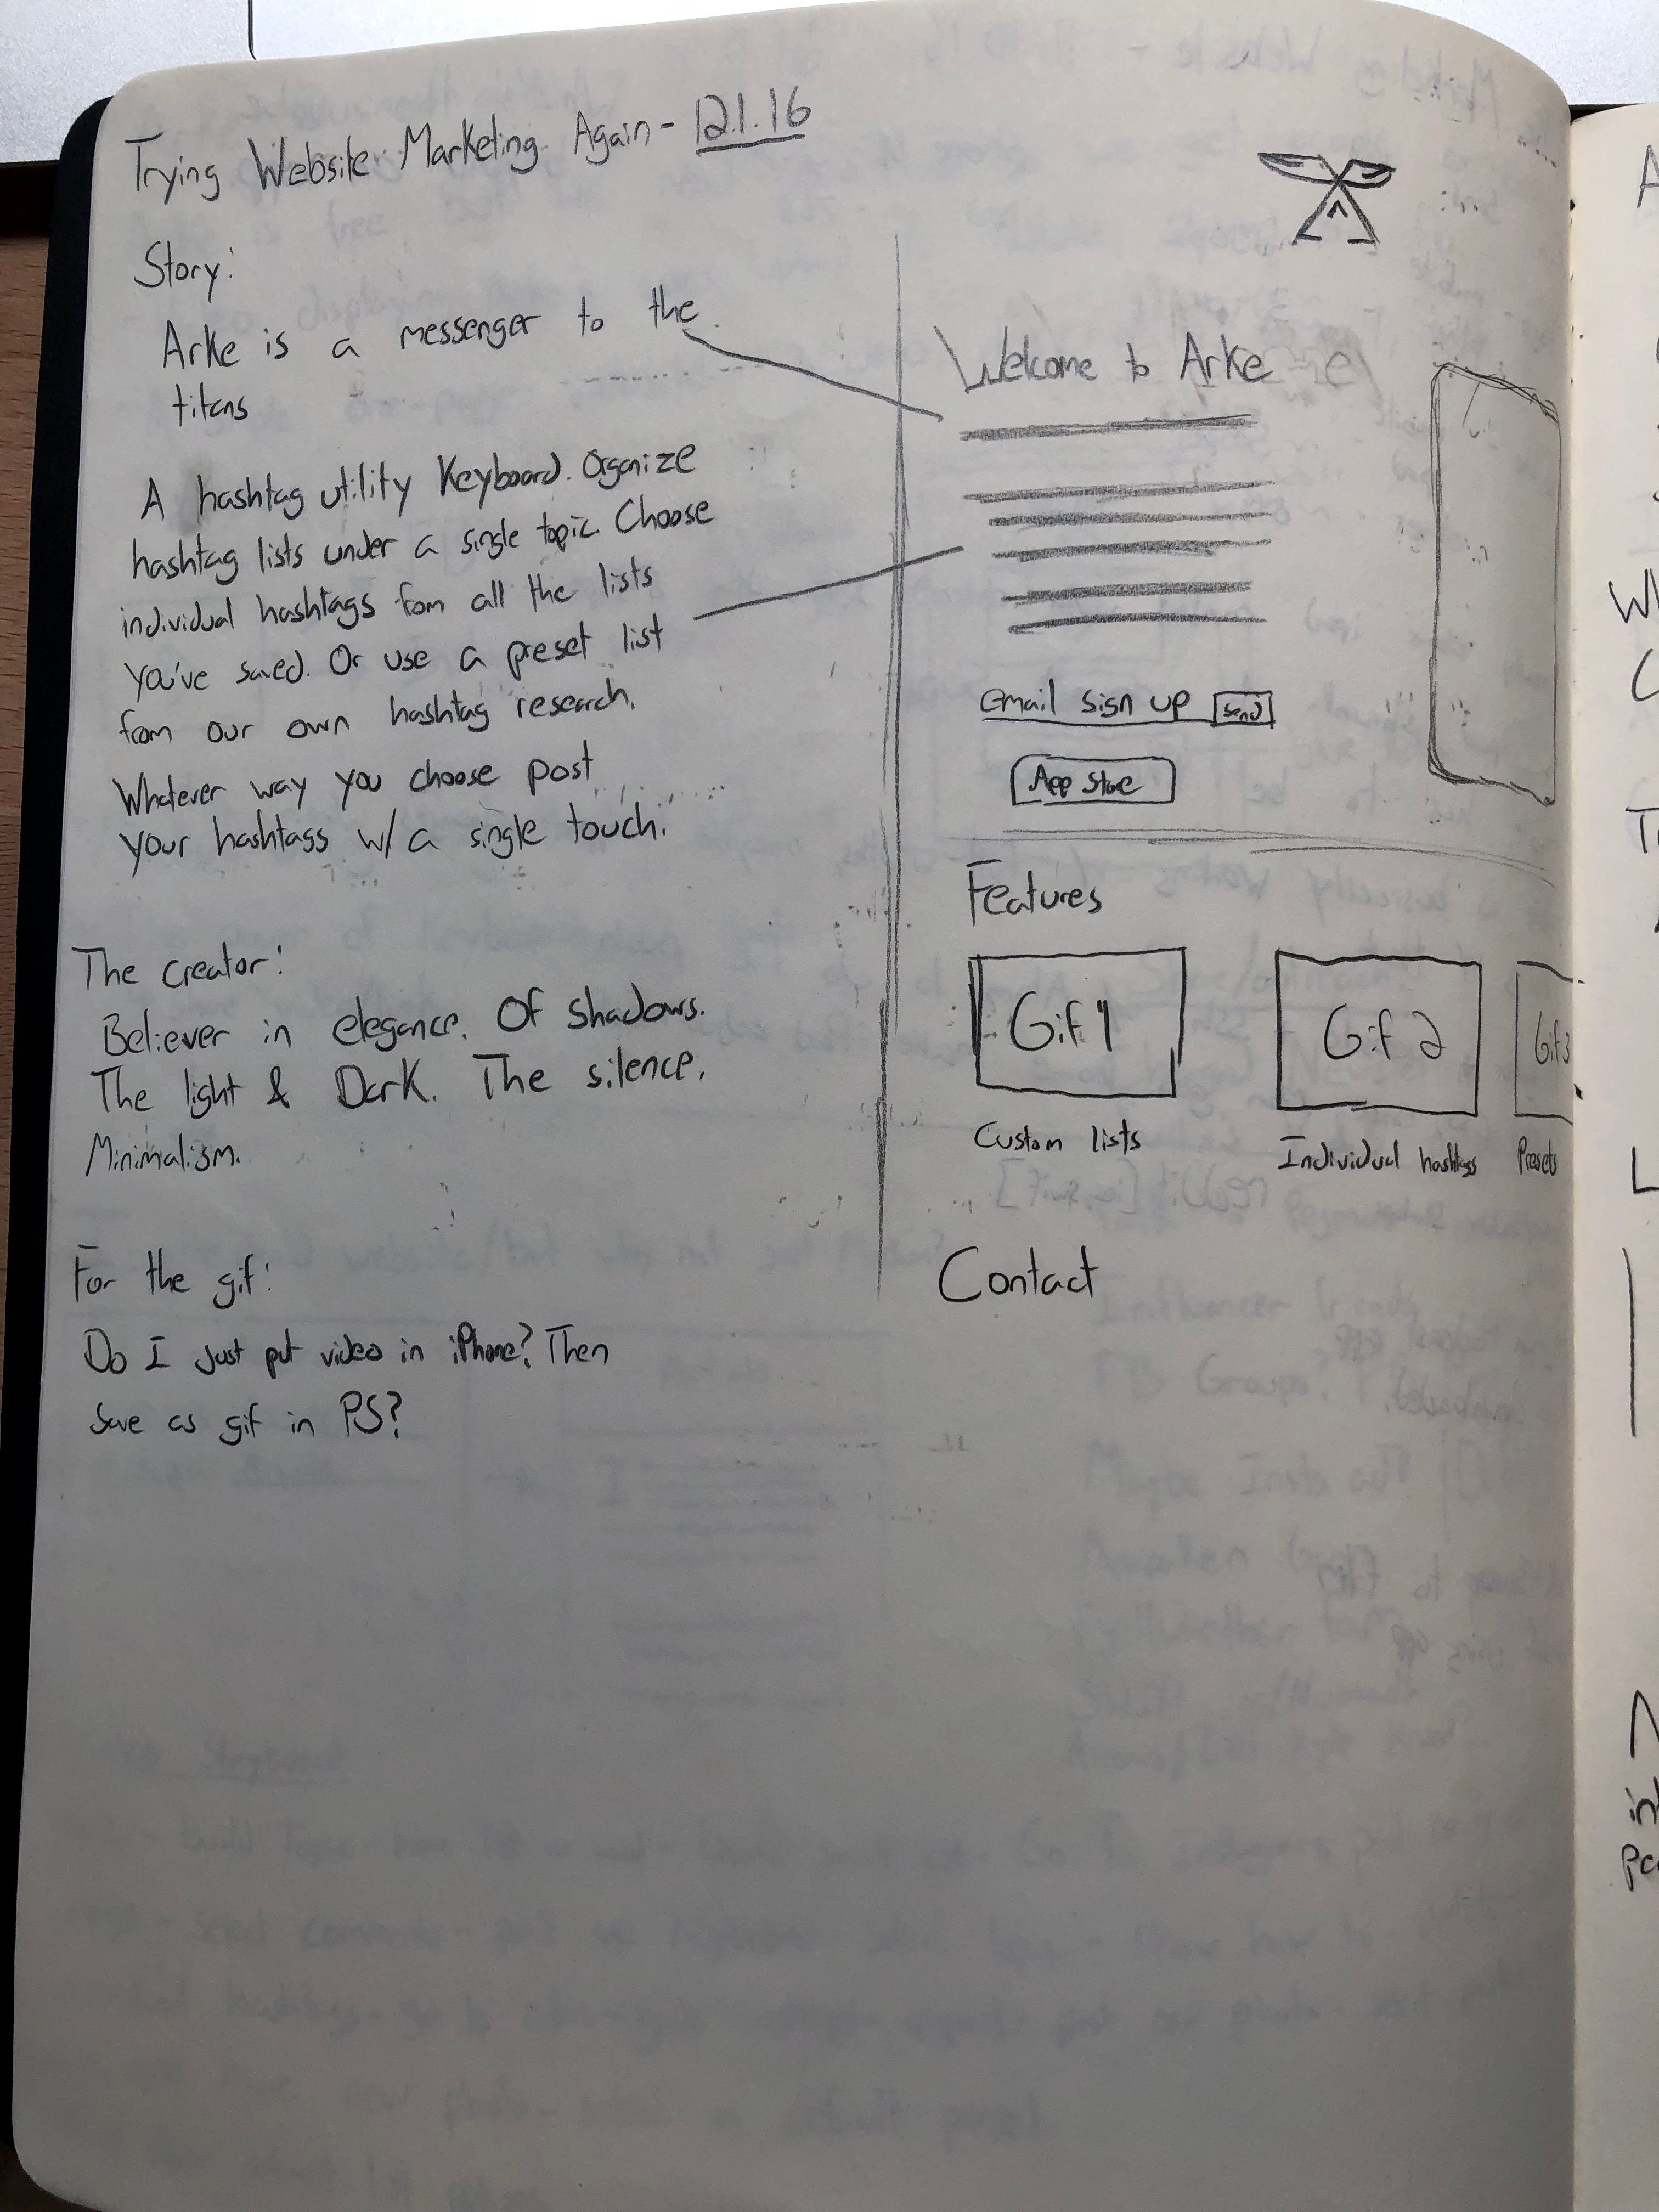 Trying Website Marketing Again - 12.1.16
Story:
Arke is a messenger to the
titans
A hashtag utility Keyboard. Organize
hashtag lists under a single topic. Choose
individual hashtags from all the lists
you've saved. Or use a preset list
from our own hashtag research.
Whatever way you choose post
your hashtags w/ a single touch.
The creator:
Believer in elegance. Of shadows.
The light & Dark. The silence.
Minimalism.
For the gif:
Do I just put video in iPhone? Then
Save as gif in PS?
Welcome to Arke
email sign up send
App Store
Features
Gif 1
Gif 2
Gif 3
Custom lists
Individual hashtags
Presets
Contact